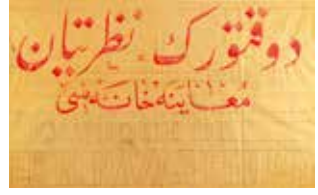 دوقتورك نظريتان
معاينه خانه سى